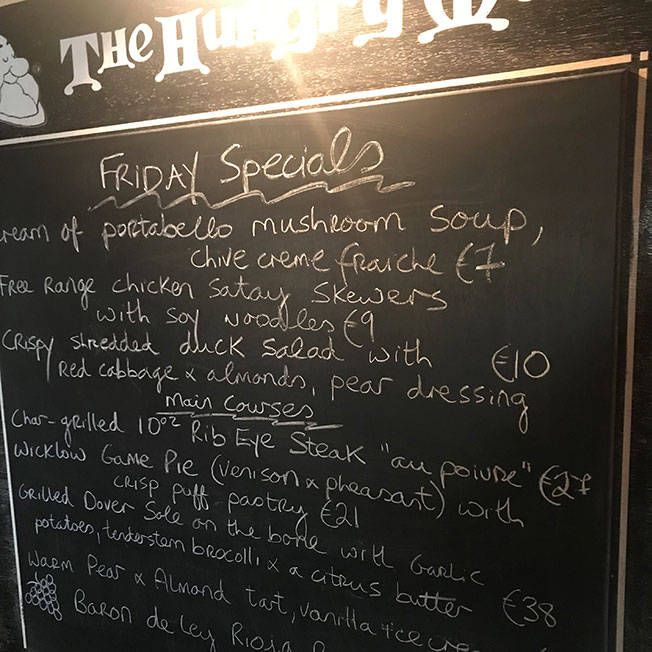 The Hungry
FRIDAY Specials
ream of portabello mushroom soup,
chive creme fraiche €7
Free Range chicken satay skewers
with soy noodles €9
Crispy shredded duck salad with €10
Red cabbage x almonds, pear dressing
Main Courses
Char-grilled 10oz Rib Eye Steak "au poivre" €27
Wicklow Game Pie (venison x pheasant) with
crisp puff pastry €21
Grilled Dover Sole on the bone with Garlic
potatoes, tenderstem brocolli x a citrus butter €38
Warm Pear x Almond tart, vanilla ice crea
Baron de Ley Rioja